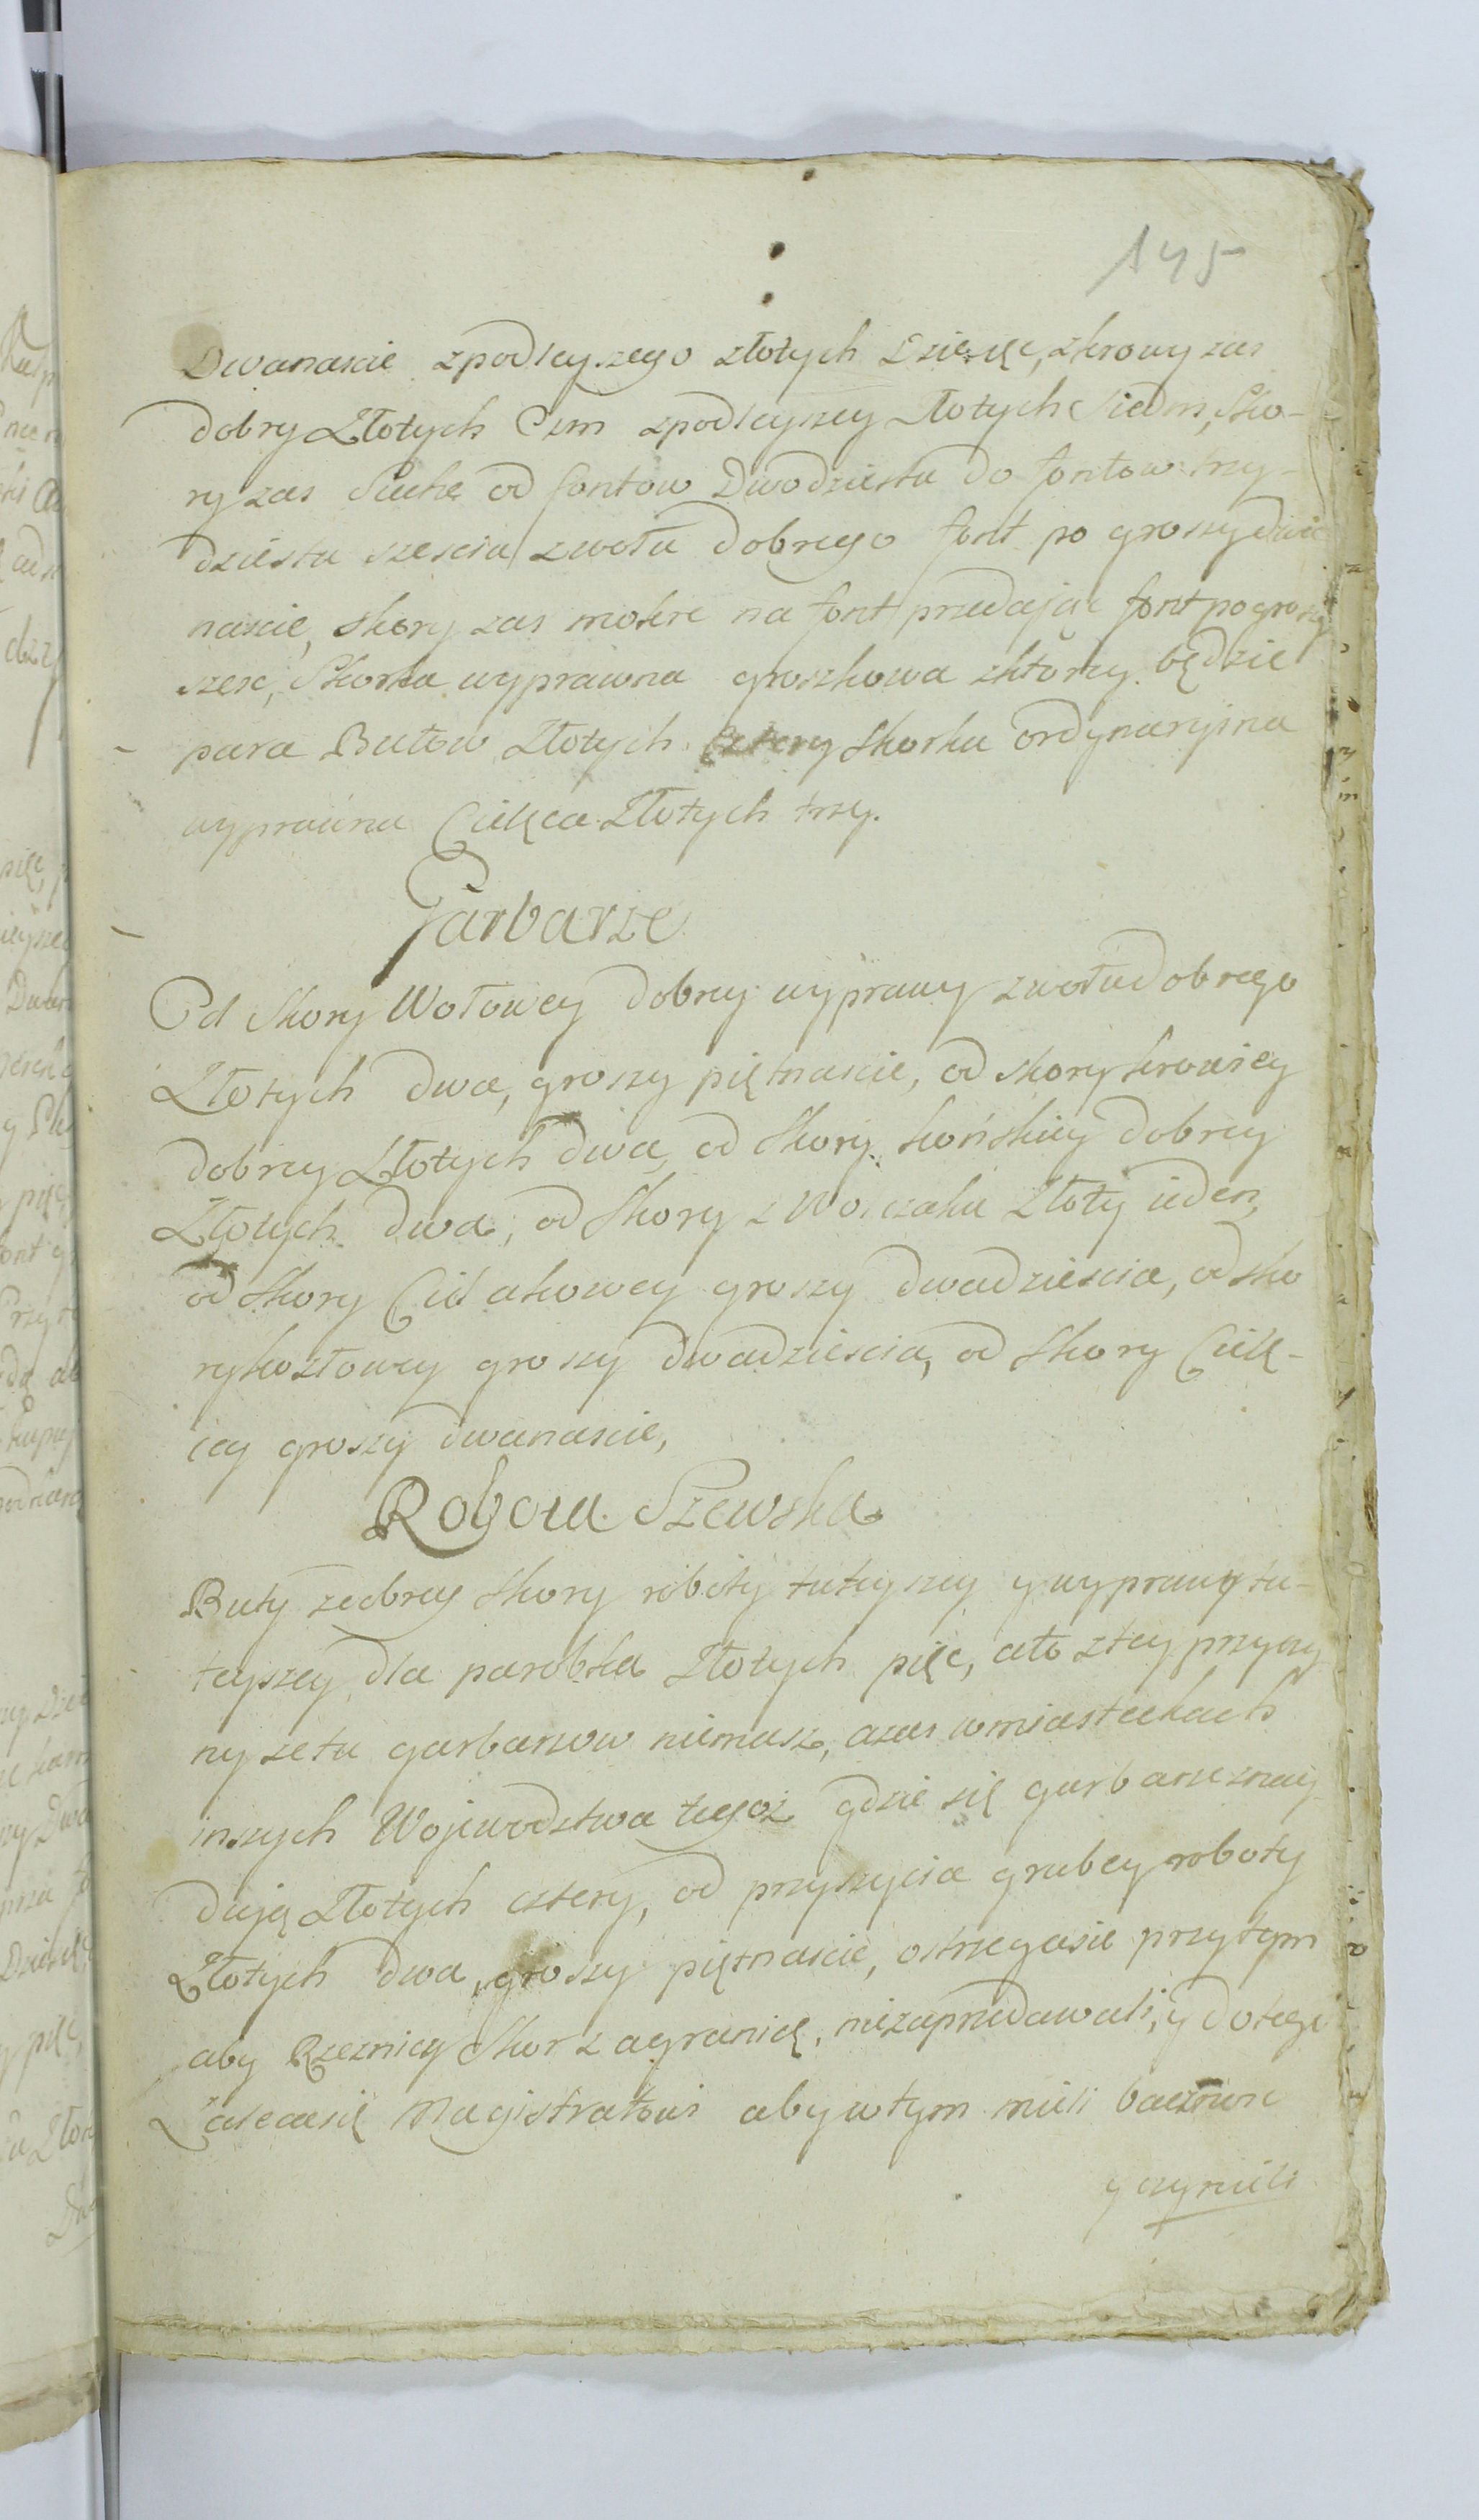 145
Dwanascie zpodleyszego złotych Dziesięc, zkrowy zas
dobry Złotych Osm zpodleyszey Złotych Siedm, Sko-
ry zas Suche od fontow Dwodziestu do fontow trzy-
dziestu szesciu zwołu dobrego font po groszy dwa
nascie, skory zas mokre na font przedając font po groszy
szesc, Skorka wyprawna groszkowa zktorey będzie
para Butow Złotych cztery Skorka ordynaryina
wyprawna Cielęca Złotych trzy.
Garbarze
Od Skory Wołowey dobrey wyprawy zwołu dobrego
Złotych dwa, groszy piętnascie, od skory krowiey
dobrey Złotych dwa, od Skory końskiey dobrey
Złotych dwa, od Skory z Wolczaka Złoty ieden,
od Skory Ciełakowey groszy dwadziescia, od sko
ry kozłowey groszy dwadziescia, od Skory Cielę-
cey groszy dwanascie,
Robota Szewska
Buty zdobrey Skory roboty tuteyszey y wyprawy tu-
teyszey dla parobka Złotych pięc, ato ztey przyczy
ny ze tu garbarzow niemasz, azas w miasteckach
inszych Wojewodztwa tegoz gdzie się garbarze znay
dują Złotych cztery, od przyszycia grubey roboty
Złotych dwa, groszy piętnascie, ostrzegasie przytym
aby Rzeznicy Skor zagranicę niezaprzedawali, y dotego
Zalecasię Magistratowi aby wtym mieli bacznosc
y czynieli